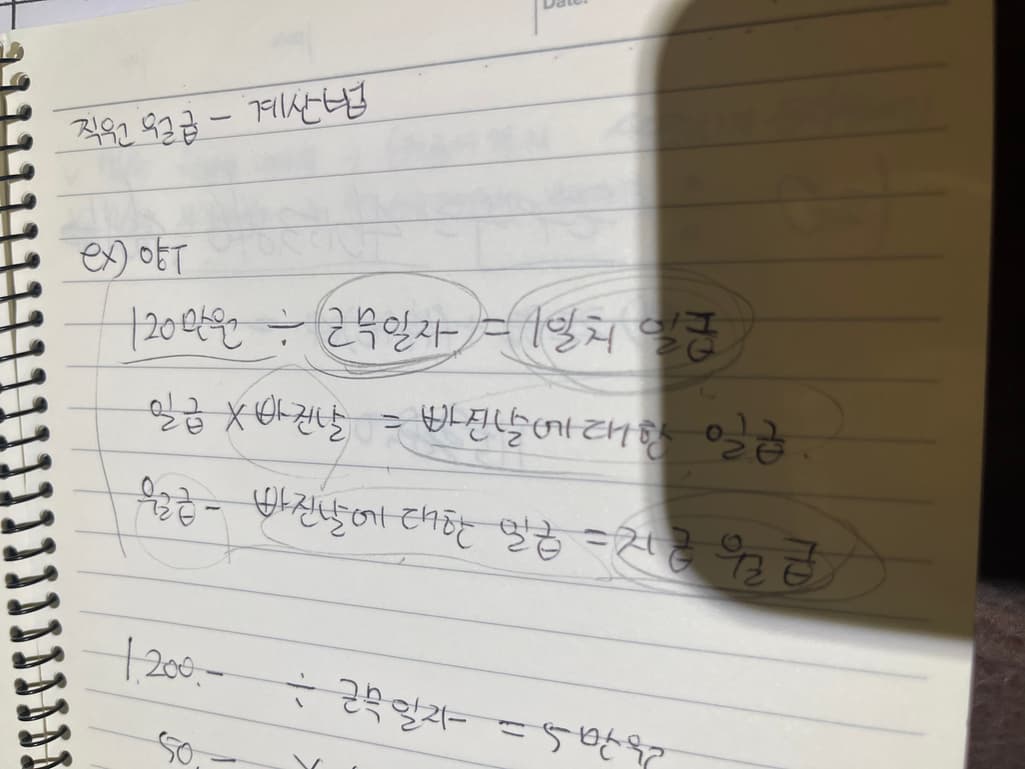 Date.
직원 월급 - 계산법
ex) 양T
120만원 ÷ 근무일자 = 1일치 일급
일급 X 빠진날 = 빠진날에 대한 일급.
월급 - 빠진날에 대한 일급 = 지급 월급
1.200.- ÷ 근무일자 = 5만원
50. - X